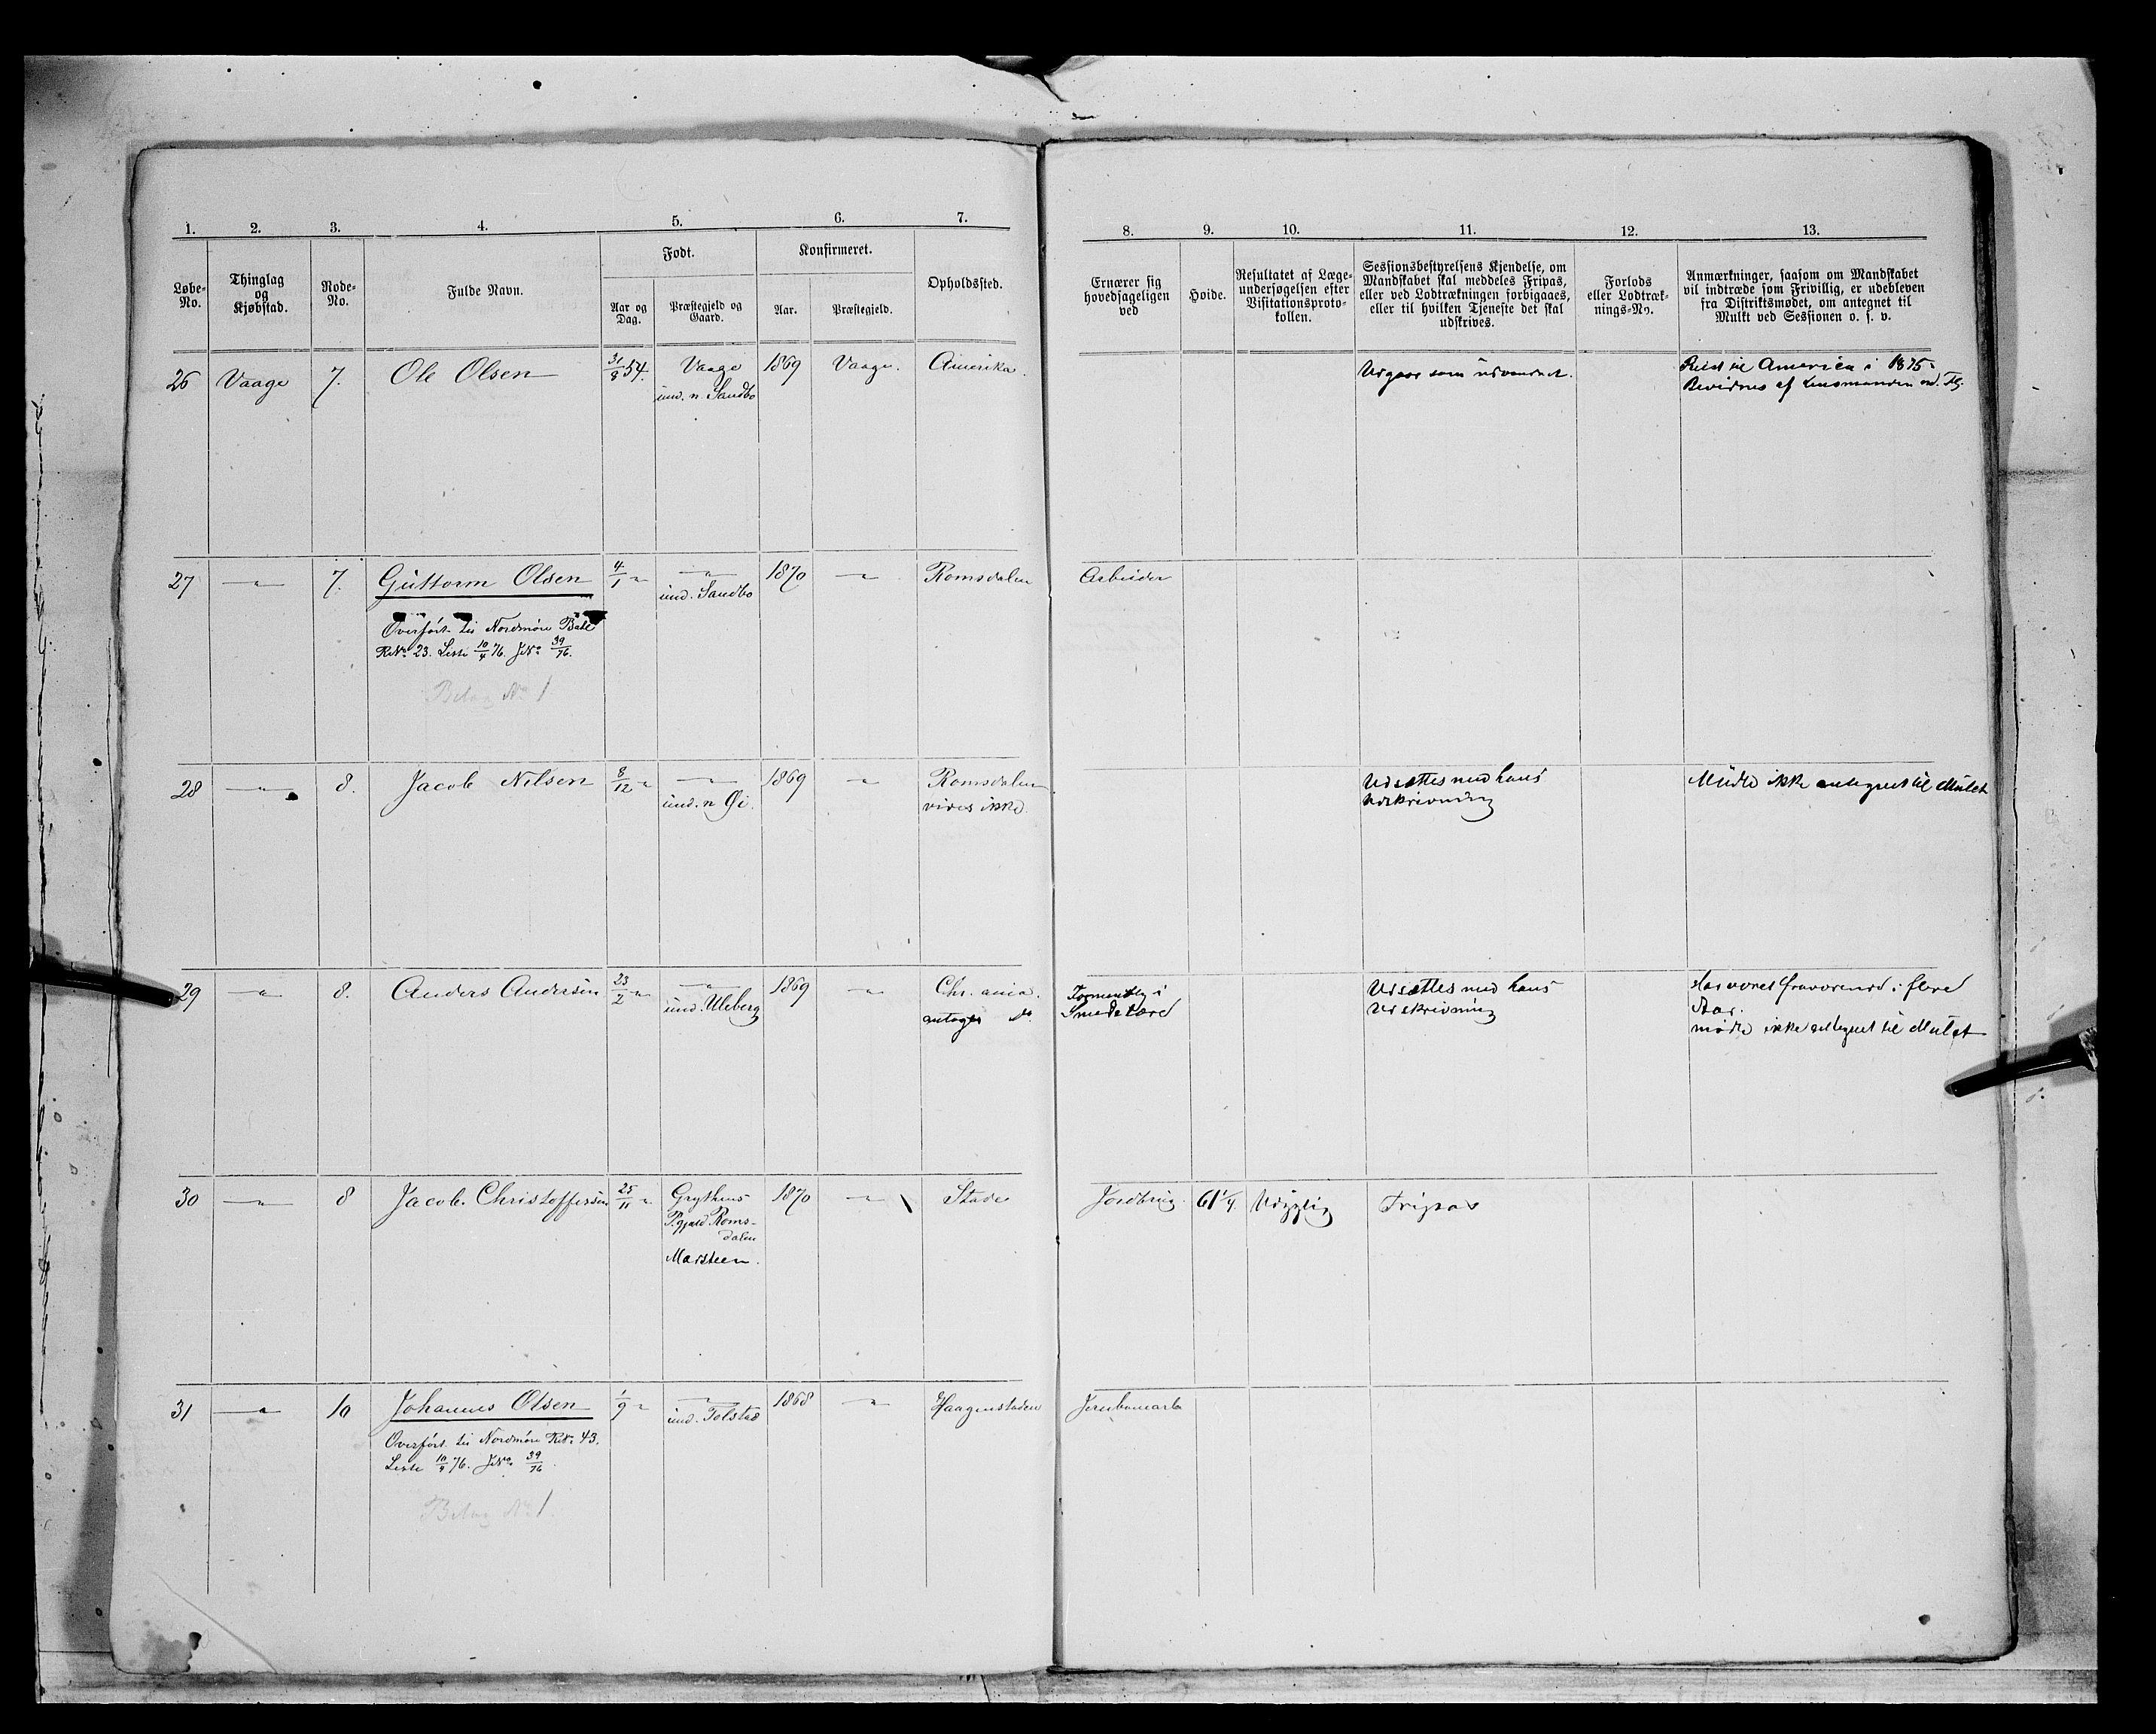 1. 2. 3. 4. 5. 6. 7. 8. 9. 10. 11. 12. 13.
Løbe-No.
Thinglag og Kjøbstad.
Rode-No.
Fulde Navn.
Født.
Aar og Dag.
Præstegjeld og Gaard.
Konfirmeret.
Aar.
Præstegjeld.
Opholdssted.
Ernærer sig hovedsageligen ved
Høide.
Resultatet af Lægeundersøgelsen efter Visitationsprotokollen.
Sessionsbestyrelsens Kjendelse, om Mandskabet skal meddeles Fripas, eller ved Lodtrækningen forbigaaes, eller til hvilken Tjeneste det skal udskrives.
Forlods eller Lodtræknings-No.
Anmærkninger, saasom om Mandskabet vil indtræde som Frivillig, er udebleven fra Distriktsmødet, om antegnet til Mulkt ved Sessionen o. s. v.
26 Vaage 7. Ole Olsen 31/8 54. Vaage 1869 Vaage. Amerika. Udgaar som udvandret. Reist til America i 1875.
und. n. Sandbo Bevidnes af Lensmanden
27 —"— 7. Guttorm Olsen 4/1 " —"— 1870 —"— Romsdalen Arbeider
und. Sandbo
Overført til Nordmøre Batl
RNo 23. Liste 10/4 76. JNo 39/76.
Bilag No 1
28 —"— 8. Jacob Nilsen 8/12 " —"— 1869 —"— Romsdalen Udsættes med hans Mødte ikke antegnet til Mulct
und. n Øi. vides ikke. Udskrivning
29 —"— 8. Anders Andersen 23/2 " —"— 1869 —"— Chr.ania. Formentlig i Udsættes med hans Har været fraværend i flere
und. Uleberg antages Smedelære Udskrivning Aar.
mødte ikke antegnet til Mulct
30 —"— 8 Jacob Christoffersen 25/11 " Grythens 1870 —"— Stade Jordbrug. 61 1/4. Udygtig Fripas
P.gjeld Romsdalen
Marsteen.
31 —"— 10 Johannes Olsen 1/9 " —"— 1868 —"— Haagenstaden Jernbanearb
und. Tolstad
Overført til Nordmøre RNo 43.
Liste 10/4 76. JNo 39/76
Bilag No 1.